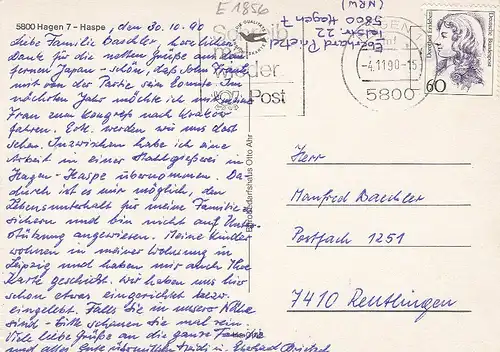 5800 Hagen 7 - Haspe , den 30.10.90
Liebe Familie Baechler, herzlichen
Dank für die netten Grüße aus dem
fernen Japan - schön, daß John Frau
mit von der Partie sein konnte. Im
nächsten Jahr möchte ich mit meiner
Frau zum Kongreß nach Krakow
fahren. Evtl. werden wir uns dort
sehen. Inzwischen habe ich eine
Arbeit in einer Stahlgießerei in
Hagen-Haspe übernommen. Da-
durch ist es mir möglich, den
Lebensunterhalt für meine Familie zu
sichern und bin nicht auf Unter-
stützung angewiesen. Meine Kinder
wohnen in meiner Wohnung in
Leipzig und haben mir auch Ihre
Karte geschickt. Wir haben uns hier
schon etwas eingerichtet bezw.
eingelebt. Falls Sie in unserer Nähe
sind - bitte schauen Sie mal rein.
Viele liebe Grüße an die ganze Familie
und alles Gute
Eberhard Prietzel
Bürobedarfshaus Otto Ahr
E 1856
Eberhard Prietzel
Talstr. 22
5800 Hagen 7
(NRW)
Schreib
mal
wieder
Post
HAGEN
-4.11.90-15
5800
Dorothea Erxleben
Deutsche Bundespost
60
Herr
Manfred Baechler
Postfach 1251
7410 Reutlingen